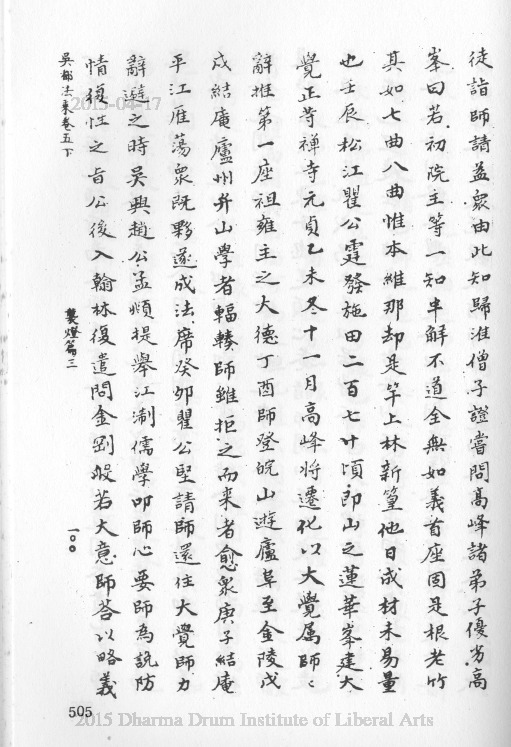 徒詣師請益眾由此知歸淮僧子證嘗問高峰諸弟子優劣高
峯曰若初院主等一知半解不道全無如義首座固是根老竹
其如七曲八曲惟本維那却是竿上林新篁他日成材未易量
也壬辰松江瞿公霆發施田二百七十頃即山之蓮華峯建大
覺正等禅寺元貞乙未冬十一月高峰将遷化以大覺属師〻
辭推第一座祖雍主之大德丁酉師登皖山遊廬阜至金陵戊
戌結庵廬州弁山學者輻輳師雖拒之而来者愈眾庚子結庵
平江雁蕩眾既夥遂成法席癸卯瞿公堅請師還住大覺師力
辭避之時吳興趙公孟頫提舉江淛儒學叩師心要師為說防
情復性之旨公後入翰林復遣問金剛般若大意師答以略義
吳都法乗卷五下
襲燈篇三
一〇〇
505
2015-04-17
2015 Dharma Drum Institute of Liberal Arts